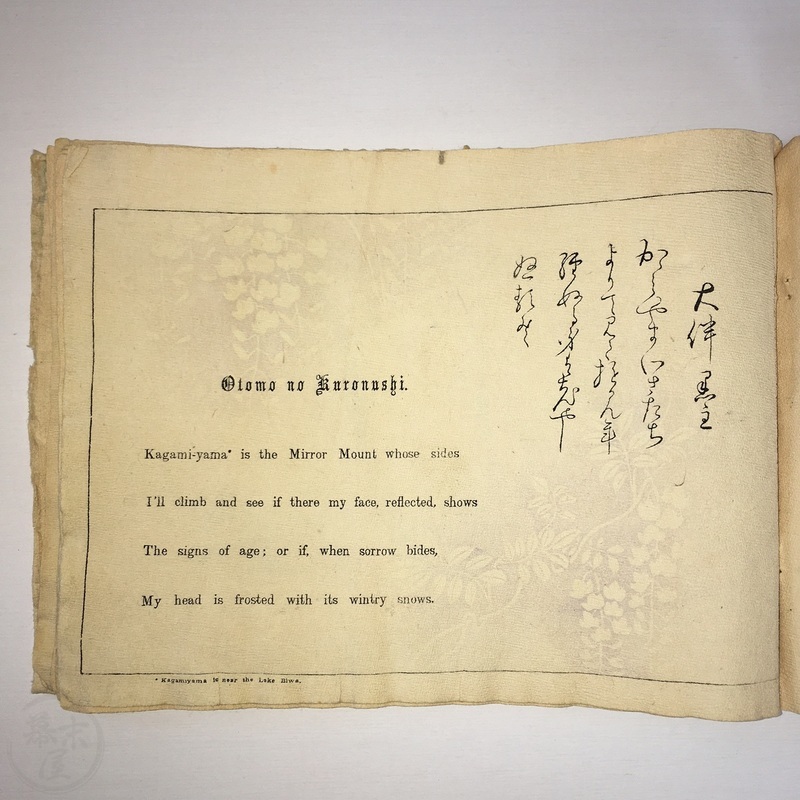 大伴黒主
かゝみやまいさたち
よりて
Otomo no Kuronushi.
Kagami-yama* is the Mirror Mount whose sides
I'll climb and see if there my face, reflected, shows
The signs of age; or if, when sorrow bides,
My head is frosted with its wintry snows.
* Kagamiyama is near the Lake Biwa.
幕末屋